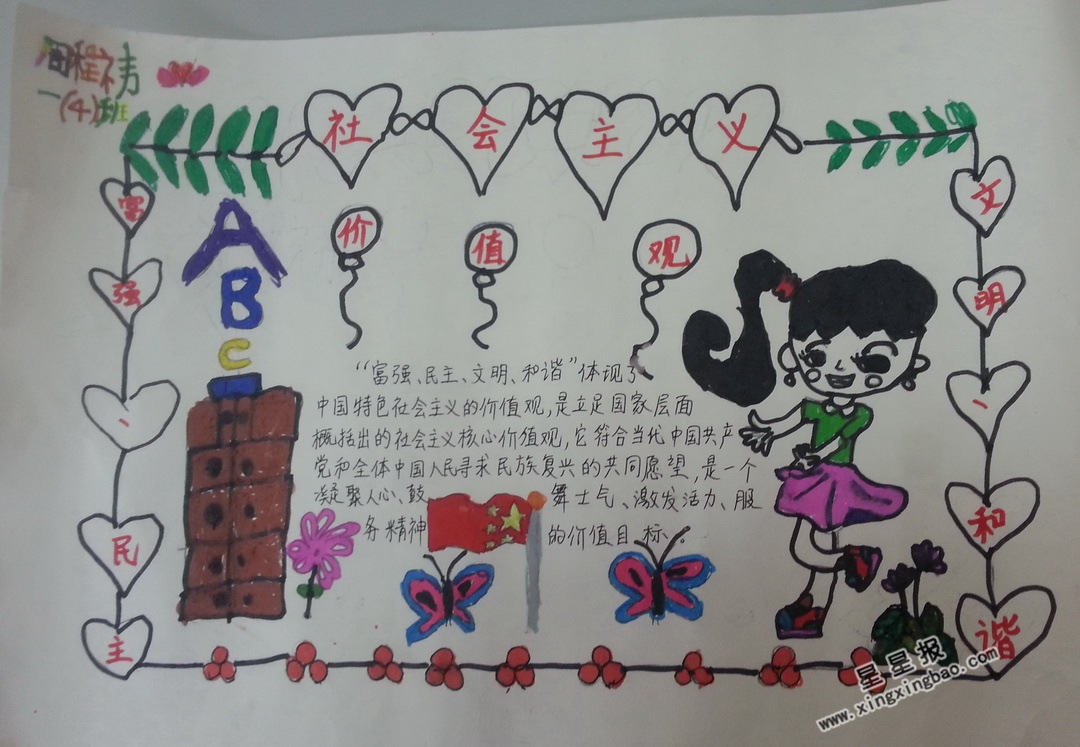 田程祎
一(4)班
社会主义
价值观
富强、民主
文明、和谐
A
B
C
“富强、民主、文明、和谐”体现了
中国特色社会主义的价值观,是立足国家层面
概括出的社会主义核心价值观,它符合当代中国共产
党和全体中国人民寻求民族复兴的共同愿望,是一个
凝聚人心、鼓舞士气、激发活力、服
务精神的价值目标。
星星报
www.xingxingbao.com